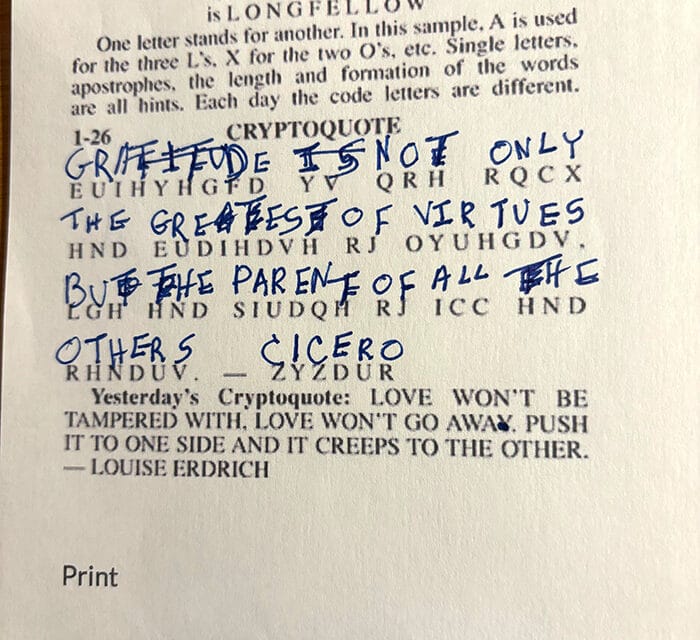 is L O N G F E L L O W
One letter stands for another. In this sample, A is used
for the three L's, X for the two O's, etc. Single letters,
apostrophes, the length and formation of the words
are all hints. Each day the code letters are different.
1-26 CRYPTOQUOTE
GRATITUDE IS NOT ONLY
E U I H Y H G F D Y V Q R H R Q C X
THE GREATEST OF VIRTUES
H N D E U D I H D V H R J O Y U H G D V ,
BUT THE PARENT OF ALL THE
L G H H N D S I U D Q H R J I C C H N D
OTHERS CICERO
R H N D U V . — Z Y Z D U R
Yesterday's Cryptoquote: LOVE WON'T BE
TAMPERED WITH, LOVE WON'T GO AWAY. PUSH
IT TO ONE SIDE AND IT CREEPS TO THE OTHER.
— LOUISE ERDRICH
Print